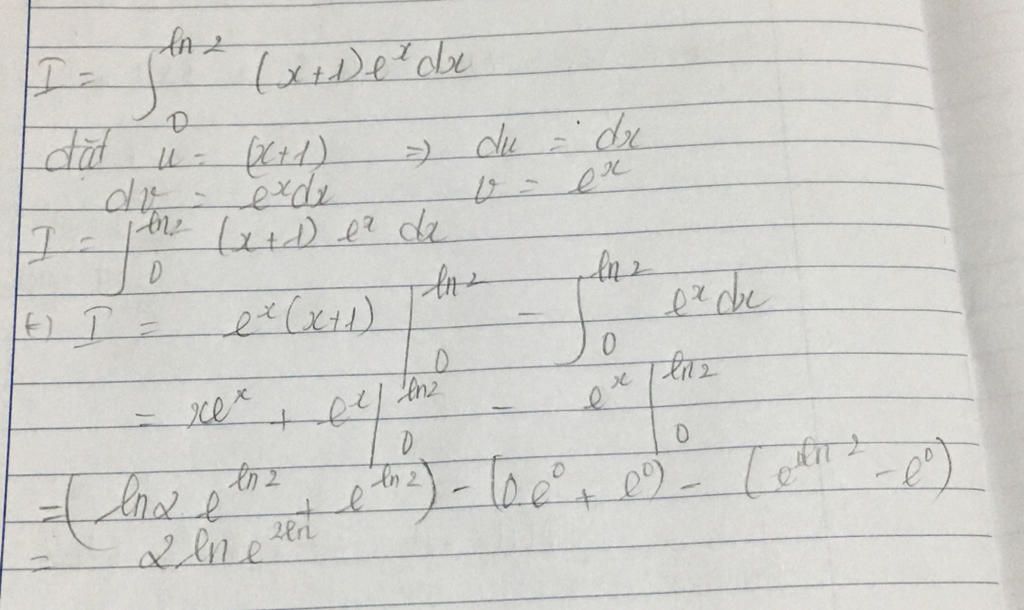 I = ∫₀^{ln 2} (x+1)e^x dx
đặt u = (x+1) ⇒ du = dx
dv = e^x dx v = e^x
I = ∫₀^{ln2} (x+1) e^x dx
(-) I = e^x(x+1) |₀^{ln 2} - ∫₀^{ln 2} e^x dx
= xe^x + e^x |₀^{ln2} - e^x |₀^{ln2}
= (ln2.e^{ln2} + e^{ln2}) - (0.e^0 + e^0) - (e^{ln 2} - e^0)
= 2 ln e^{2ln}